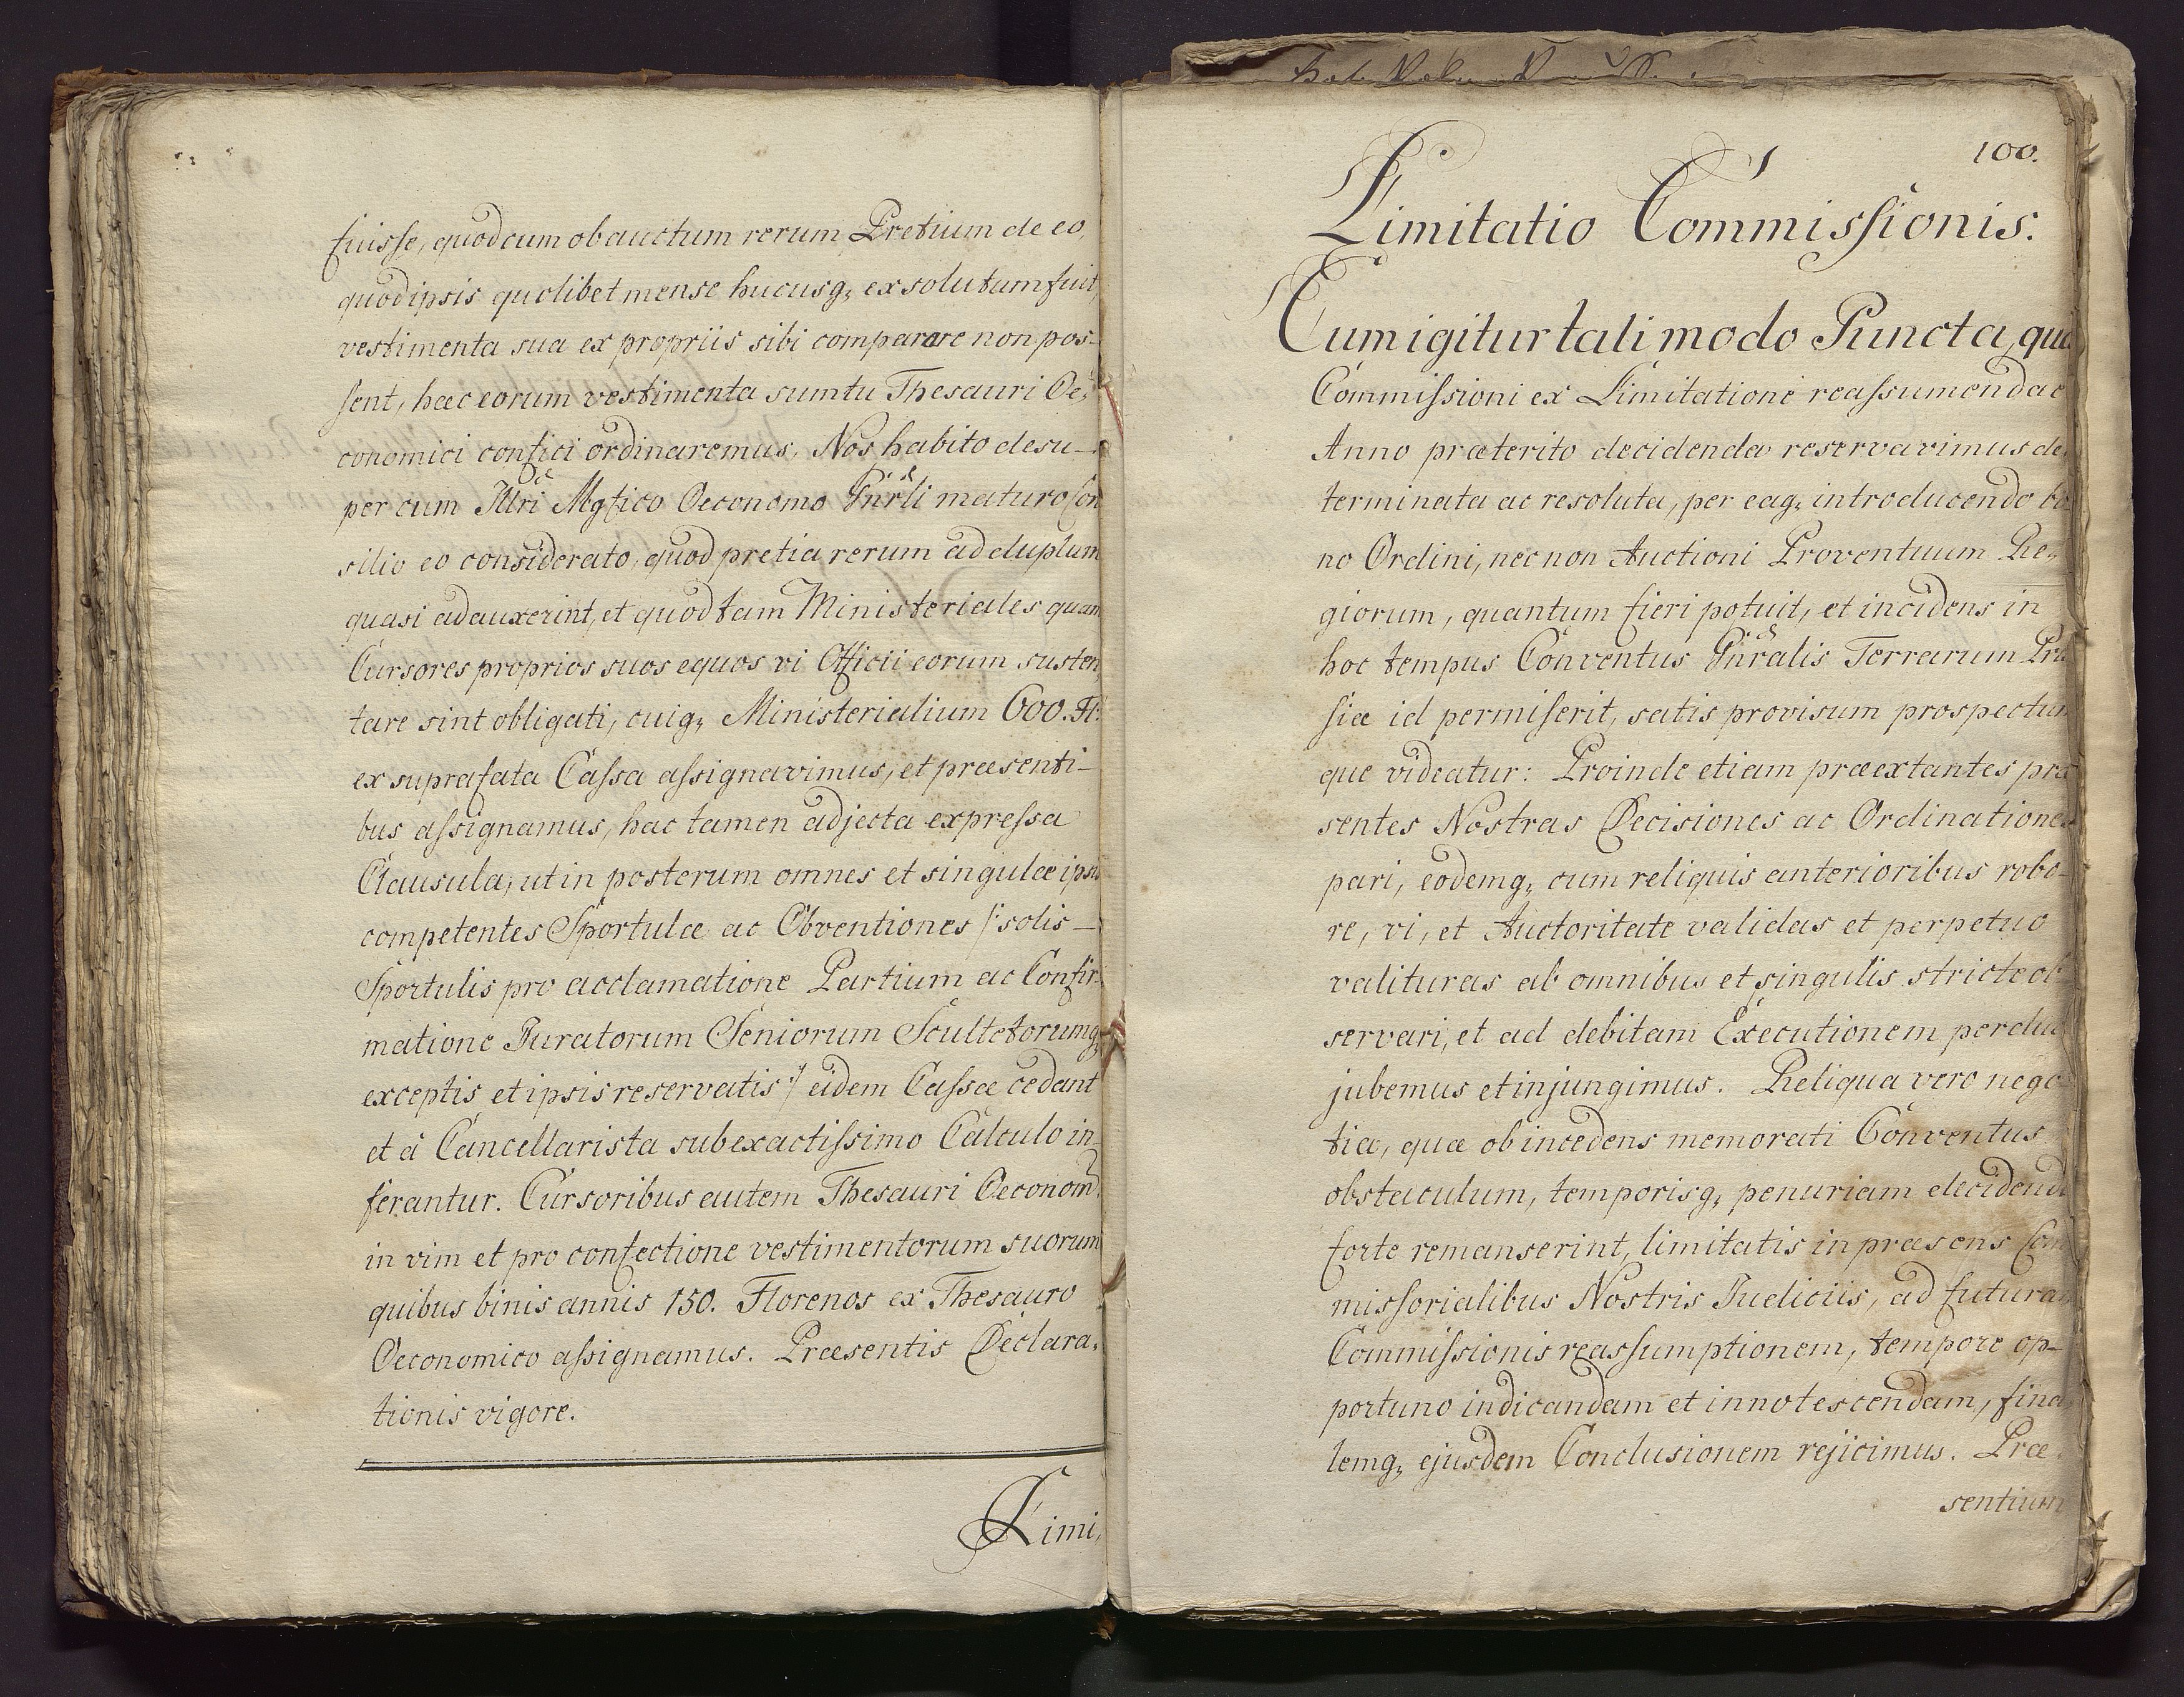 fuisse, quod cum ob auctum rerum Pretium de eo,
quod ipsis quolibet mense hucusq; exsolutum fuit,
vestimenta sua ex propriis sibi comparare non pos-
sent, haec eorum vestimenta sumtu Thesauri Oe-
conomici confici ordinaremus. Nos habito desu-
per cum Illri Mgfico Oeconomo Gnrli maturo Con
silio eo considerato, quod pretia rerum ad duplum
quasi adauxerint, et quod tam Ministeriales quam
Cursores proprios suos equos vi Officii eorum susten,
tare sint obligati, cuiq; Ministerialium 600. Fl:
ex suprafata Cassa assignavimus, et praesenti-
bus assignamus, hac tamen adjecta expressa
Clausula, ut in posterum omnes et singulae ipsis
competentes Sportulae ac Obventiones /: solis -
Sportulis pro acclamatione Partium ac Confir-
matione Juratorum Seniorum Scultetorumq;
exceptis et ipsis reservatis :/ eidem Cassae cedant
et à Cancellarista sub exactissimo Calculo in-
ferantur. Cursoribus autem Thesauri Oeconom:
in vim et pro confectione vestimentorum suorum
quibus binis annis 150. Florenos ex Thesauro
Oeconomico assignamus. Praesentis Declara,
tionis vigore.
Limi,
100.
Limitatio Commissionis.
Cum igitur tali modo Puncta, quae
Commissioni ex Limitatione reassumendae
Anno praeterito decidenda reservavimus de,
terminata ac resoluta, per eaq; introducendo bo
no Ordini, nec non Auctioni Proventuum Re,
giorum, quantum fieri potuit, et incidens in
hoc tempus Conventus Gnralis Terrarum Pru
siae id permiserit, satis provisum prospectum
que videatur: Proinde etiam praeextantes prae
sentes Nostras Decisiones ac Ordinationes
pari, eodemq; cum reliquis anterioribus robo-
re, vi, et Auctoritate validas et perpetuo
valituras ab omnibus et singulis stricte ob-
servari, et ad debitam Executionem perduci
jubemus et injungimus. Reliqua vero nego
tia, quae ob incedens memorati Conventus
obstaculum, temporisq; penuriam decidenda
forte remanserint, limitatis in praesens Com
missorialibus Nostris Judiciis, ad futuram
Commissionis reassumptionem, tempore op-
portuno indicandam et innotescendam, fina,
lemq; ejusdem Conclusionem rejicimus. Prae,
sentium